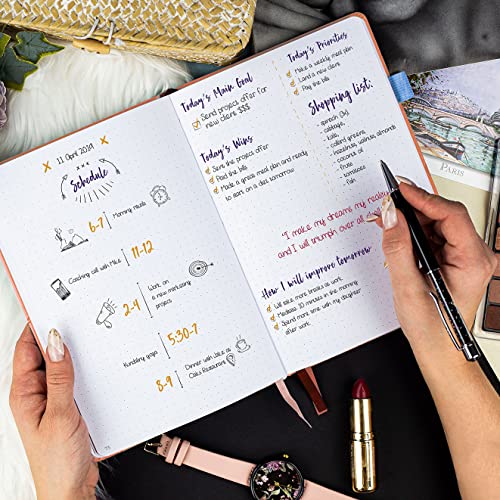 11 April 2019
x x x
Schedule
6-7
Morning rituals
11-12
Coaching call with Mike
2-4
Work on
a new marketing
project
5:30-7
Kundaliny yoga
8-9
Dinner with Jake at
Oaks Restaurant
Today's Main Goal
Send project offer for
new client $$$
Today's Wins
Sent the project offer
Paid the bills
Made a great meal plan and ready
to start on a diet tomorrow
Today's Priorities
Make a weekly meal plan
Land a new client
Pay the bills
Shopping list:
- spinach (1x)
- cabbage
- kale
- collard greens
- hazelnuts, walnuts, almonds
- coconut oil
- fruits
- tomatoes
- fish
"I make my dreams my reality
and I will triumph over all
How I will improve tomorrow
Will take more breaks at work
Meditate 10 minutes in the morning
Spend more time with my daughter
after work
PARIS